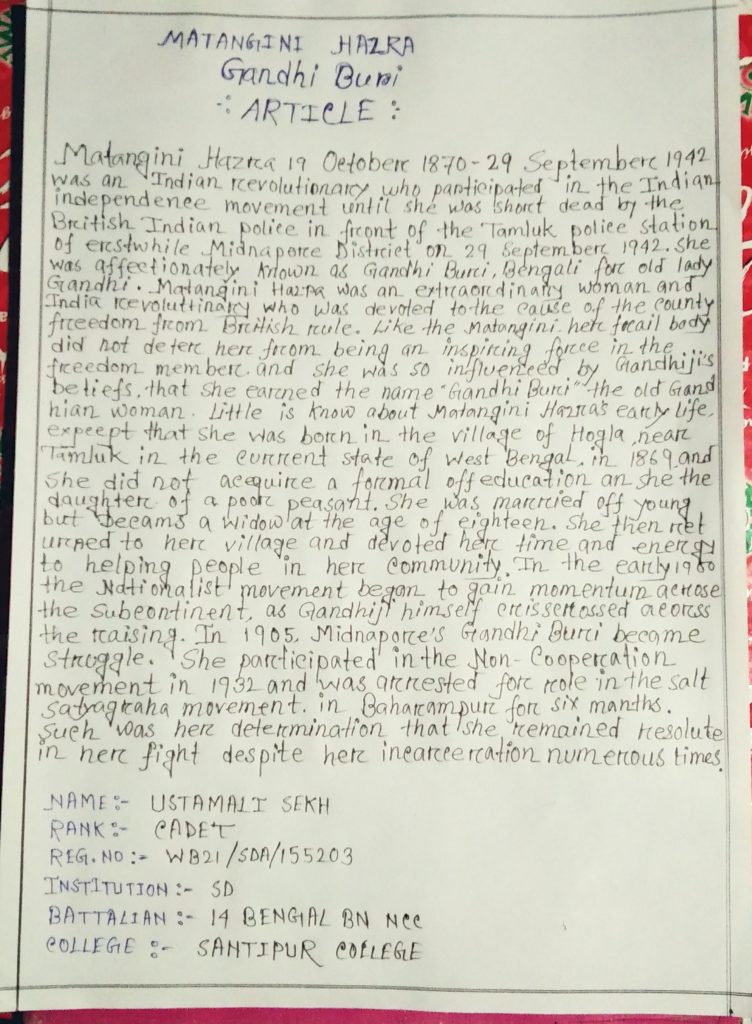 MATANGINI HAZRA
Gandhi Buri
-: ARTICLE :-
Matangini Hazra 19 October 1870 - 29 September 1942
was an Indian revolutionary who participated in the Indian
independence movement until she was short dead by the
British Indian police in front of the Tamluk police station
of erstwhile Midnapore District on 29 September 1942. She
was affectionately known as Gandhi Buri, Bengali for old lady
Gandhi. Matangini Hazra was an extraordinary woman and
India revoluttinary who was devoted to the cause of the county
freedom from British rule. Like the Matangini her frail body
did not deter here from being an inspiring force in the
freedom member. and she was so influenced by Gandhiji's
beliefs, that she earned the name "Gandhi Buri" the old Gand
hian woman. Little is know about Matangini Hazra's early life,
expeept that she was born in the village of Hogla, near
Tamluk in the current state of West Bengal, in 1869 and
she did not acequire a formal off education an she the
daughter of a poor peasant. She was married off young
but becams a widow at the age of eighteen. She then ret
urned to here village and devoted here time and energy
to helping people in here community. In the early
the Nationalist movement began to gain momentum acrose
the subeontinent, as Gandhiji himself crissertossed aeorss
the raising. In 1905, Midnapore's Gandhi Buri became
struggle. She participated in the Non-Cooperation
movement in 1932 and was arrested for role in the salt
satyagraha movement. in Baharampur for six manths.
Such was her determination that she remained resolute
in here fight despite here incarceration numerous times.
NAME :- USTAMALI SEKH
RANK :- CADET
REG. NO :- WB21/SDA/155203
INSTITUTION :- SD
BATTALIAN :- 14 BENGAL BN NCC
COLLEGE :- SANTIPUR COLLEGE